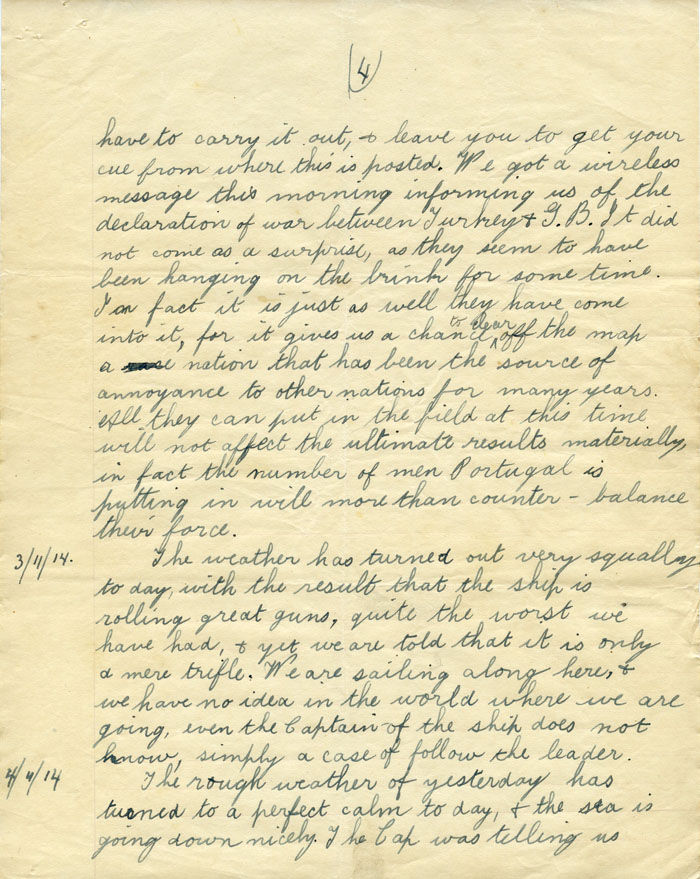 4
have to carry it out, & leave you to get your
cue from where this is posted. We got a wireless
message this morning informing us of the
declaration of war between Turkey & G. B. It did
not come as a surprise, as they seem to have
been hanging on the brink for some time.
In fact it is just as well they have come
into it, for it gives us a chance to clear off the map
a nation that has been the source of
annoyance to other nations for many years.
All they can put in the field at this time
will not affect the ultimate results materially,
in fact the number of men Portugal is
putting in will more than counter - balance
their force.
3/11/14. The weather has turned out very squally
to day, with the result that the ship is
rolling great guns, quite the worst we
have had, & yet we are told that it is only
a mere trifle. We are sailing along here, &
we have no idea in the world where we are
going, even the Captain of the ship does not
know, simply a case of follow the leader.
4/11/14 The rough weather of yesterday has
turned to a perfect calm to day, & the sea is
going down nicely. The Cap was telling us